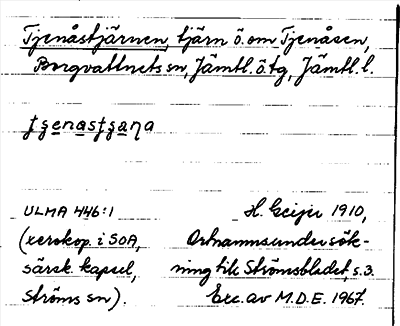 Tjenåstjärnen, tjärn ö. om Tjenåsen,
Borgvattnets sn, Jämtl. ö. tg, Jämtl. l.
ULMA 446:1 H. Geijer 1910,
(xerokop. i SOA, Ortnamnsundersök-
särsk. kapsel, ning till Strömsbladet, s. 3.
Ströms sn). Exc. av M.D.E. 1967.